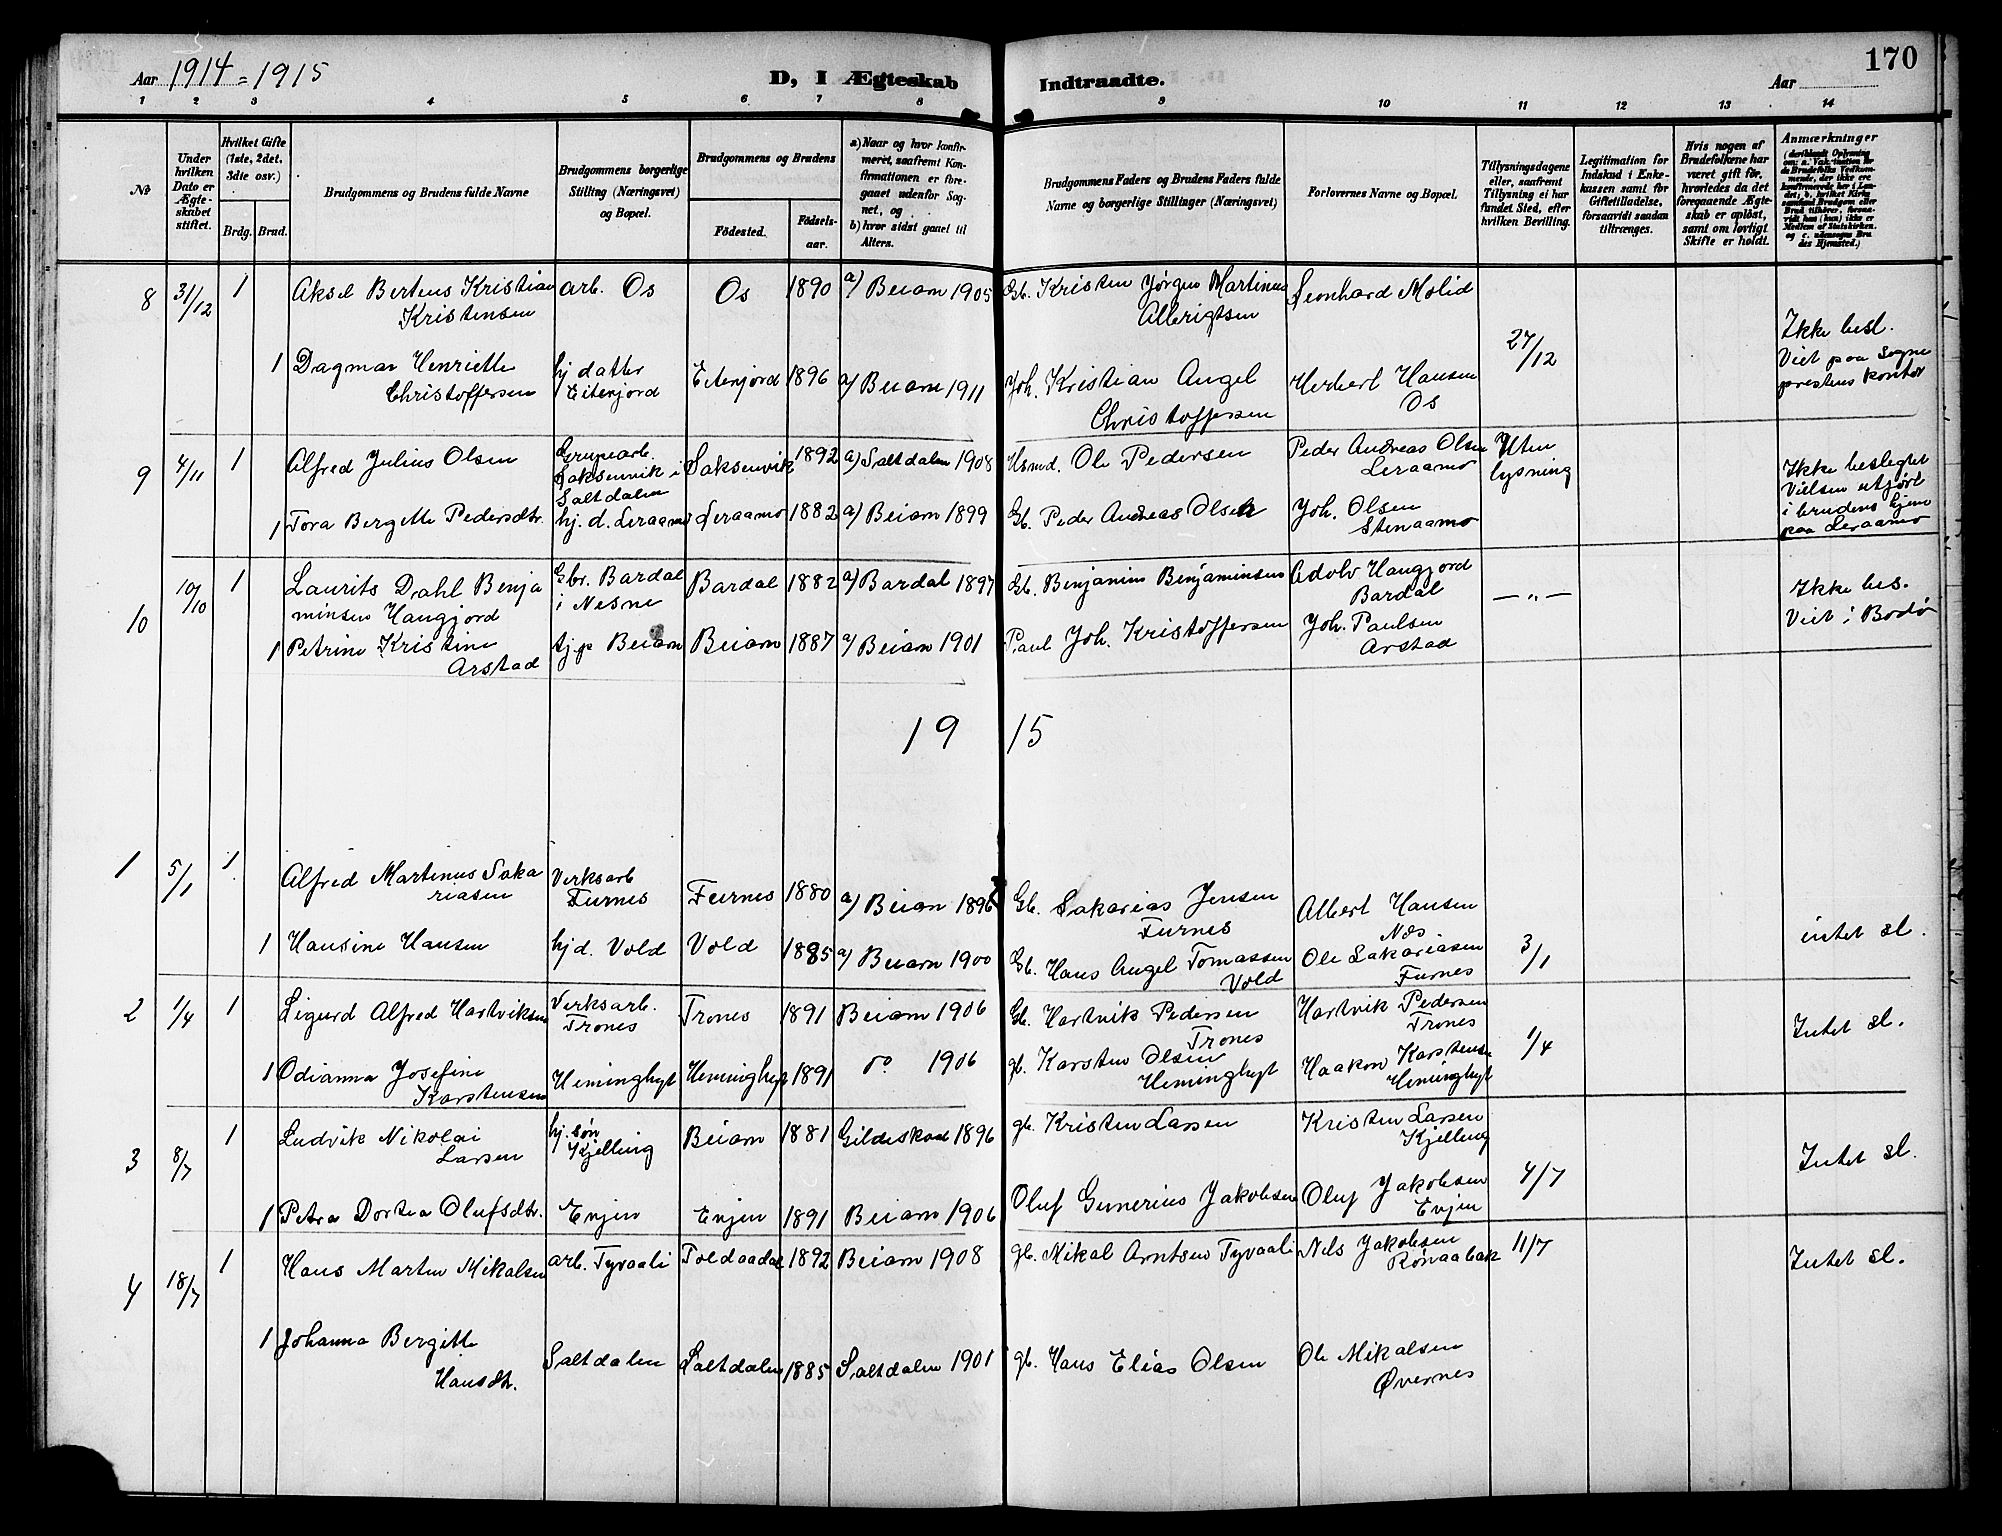 170
Aar 1914 = 1915
D, I Ægteskab
Indtraadte.
Aar
1 2 3 4 5 6 7 8 9 10 11 12 13 14
No
Under hvilken Dato er Ægteskabet stiftet.
Hvilket Gifte (1ste, 2det, 3die osv.)
Brdg. Brud.
Brudgommens og Brudens fulde Navne
Brudgommens borgerlige Stilling (Næringsvei) og Bopæl.
Brudgommens og Brudens
Fødested.
Fødselsaar.
a) Naar og hvor konfirmeret, saafremt Konfirmationen er foregaaet udenfor Sognet, og
b) hvor sidst gaaet til Alters.
Brudgommens Faders og Brudens Faders fulde Navne og borgerlige Stillinger (Næringsvei)
Forlovernes Navne og Bopæl.
Tillysningsdagene eller, saafremt Tillysning ei har fundet Sted, efter hvilken Bevilling.
Legitimation for Indskud i Enkekassen samt for Giftetilladelse, forsaavidt saadan tiltrænges.
Hvis nogen af Brudefolkene har været gift før, hvorledes da det foregaaende Ægteskab er opløst, samt om lovligt Skifte er holdt.
Anmærkninger
8 31/12 1 Aksel Bertens Kristian Kristensen arb. Os Os 1890 a/ Beiarn 1905 Gb. Kristen Jørgen Martinus Albrigtsen Leonhard Molid
27/12
Ikke besl.
Viet paa Sogne
prestens kontor
1 Dagmar Henriette Christoffersen hj datter Eitenjord Eitenjord 1896 a/ Beiarn 1911 Joh. Kristian Angel Christoffersen Herbert Hansen Os
9 4/11 1 Alfred Julius Olsen Grupearb. Saksenvik i Saltdalen Saksenvik 1892 a/ Saltdalen 1908 Husmd. Ole Pedersen Peder Andreas Olsen Leraamo Uten lysning
Ikke beslegtet
Vielsen utført
i brudens hjem
paa Leraamo
1 Tora Bergette Pedersdtr. hj. d. Leraamo Leraamo 1882 a/ Beiarn 1899 Gb. Peder Andreas Olsen Joh. Olsen Stenaamo
10 10/10 1 Laurits Dahl Benja minsen Haugjord Gbr. Bardal i Nesne Bardal 1882 a/ Bardal 1897 Gb. Benjamin Benjaminsen Adolv Haugjord Bardal — „ —
Ikke bes.
Viet i Bodø
1 Petrine Kristine Arstad tj.p Beiarn Beiarn 1887 a/ Beiarn 1901 Paul Joh. Kristoffersen Joh. Paulsen Arstad
19 15
1 5/1 1 Alfred Martinus Saka riasen Verksarb Furnes Furnes 1880 a/ Beiarn 1896 Gb. Sakarias Jensen Furnes Albert Hansen Nes
3/1
intet sl.
1 Hansine Hansen hj d. Vold Vold 1885 a/ Beiarn 1900 Gb. Hans Angel Tomassen Vold Ole Sakariasen Furnes
2 1/4 1 Sigurd Alfred Hartviksen Verksarb. Trones Trones 1891 Beiarn 1906 Gb. Hartvik Pedersen Trones Hartvik Pedersen Trones
1/4
Intet sl.
1 Odianna Josefine Karstensen Heminghyt Heminghyt 1891 do 1906 gb. Karsten Olsen Heminghyt Haakon Karstensen Heminghyt
3 8/7 1 Ludvik Nikolai Larsen hj. søn Kjelling Beiarn 1881 Gildeskaal 1896 gb. Kristen Larsen Kristen Larsen Kjelling
4/7
Intet sl.
1 Petra Dortea Olufsdtr. Evjen Evjen 1891 Beiarn 1906 Oluf Gunerius Jakobsen Oluf Jakobsen Evjen
4 18/7 1 Hans Martin Mikalsen arb. Tyvaali Toldaadal 1892 Beiarn 1908 gb. Mikal Arntsen Tyvaali Nils Jakobsen Rønaabak 11/7 Intet sl.
1 Johanna Bergitte Hansdtr. Saltdalen Saltdalen 1885 Saltdalen 1901 gb. Hans Elias Olsen Ole Mikalsen Øvernes